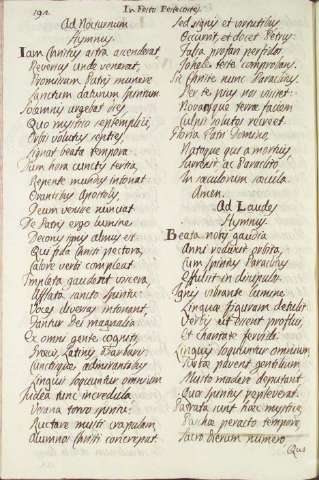 192
In Festo Pentecostes.
Ad Nocturnum
Hymnus.
Iam Christus astra ascenderat
Reversus unde venerat,
Promissum Patris munere
Sanctum daturum spiritum
Solemnis urgebat dies
Quo mystico septemplici,
Orbis volutus septies,
Signat beata tempora.
Dum hora cunctis tertia,
Repente mundus intonat
Orantibus Apostolis,
Deum venire nunciat
De Patris ergo lumine
Decorus ignis almus est
Qui fida Christi pectora,
Calore verbi compleat.
Impleta gaudent viscera,
Afflata sancto spiritu:
Voces diversas intonant,
Fantur Dei magnalia
Ex omni gente cogniti,
Græcis, Latinis Barbaris
Cunctisque admirantibus
Linguis loquuntur omnium
Iudea tunc incredula
Vesana torvo spiritu:
Ructare musti crapulam,
Alumnos Christi concrepat.
Sed signis et virtutibus
Occurrit, et docet Petrus:
Falsa profari perfidos
Johelis teste comprobans.
Sit Christe nunc Paraclitus
Per te pius
terræ faciem
Culpis solutos recreet
Gloria Patri Domino,
Natoque qui a mortuis,
Surrexit ac Paraclito,
In sæculorum sæcula.
Amen.
Ad Laudes
Hymnus
Beata nobis gaudia
Anni reduxit orbita,
Cum spiritus Paraclitus
Effulsit in discipulos.
Ignis vibrante lumine
Linguæ figuram detulit
Verbis ut essent proflui,
Et charitate fervidi.
Linguis loquuntur omnium,
Turbæ pavent gentilium
Musto madere deputant
Quos spiritus repleverat.
Patrata sunt hæc mystice
Paschæ peracto tempore,
Sacro dierum numero
Quo